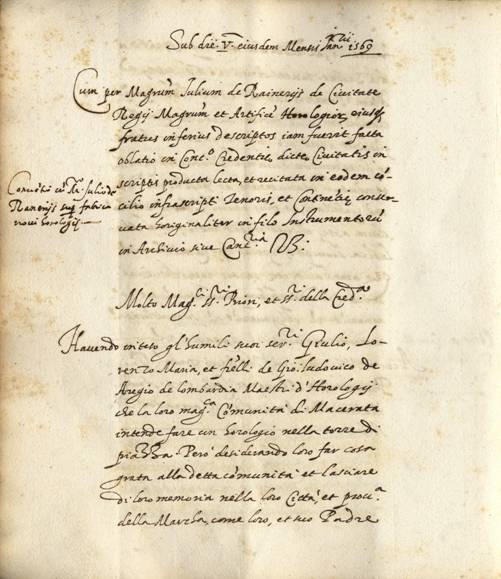 Sub die V.ᵃ eiusdem Mensis Januarii 1569
Cum per Magrum Iulium de Rainerijs de Civitate
Regij Magrum et Artificẽ Horologior, eiusq
fratris inferius descriptos iam fuerit facta
oblatio in Conc.º Credentie, dicte Civitatis in
scriptis producta lecta, et recitata in eodem cõ-
cilio infrascripti Tenoris, et Continẽtie, conser-
vata horiginaliter in filo Instrumentorũ
in Archivio sive Canc.ria
Mᵒ Iulio de
Ranerijs sup fabrica
novi horologij
Molto Mag.ci SS.ri Priori, et SS.ri della Cred.a
Havendo inteso gl'humili suoi ser.ri Giulio, Lo-
renzo Maria, et f̃elli de Gio: ludovico de
Aregio de lombardia Maestri d'Horologij
che la loro mag.ca Cõmunità di Macerata
intende fare un horologio nella torre di
piazza. Però desiderando loro far cosa
grata alla detta cõmunità et lasciare
di loro memoria nella loro Città, et prov.a
della Marcha, come loro, et suo Padre